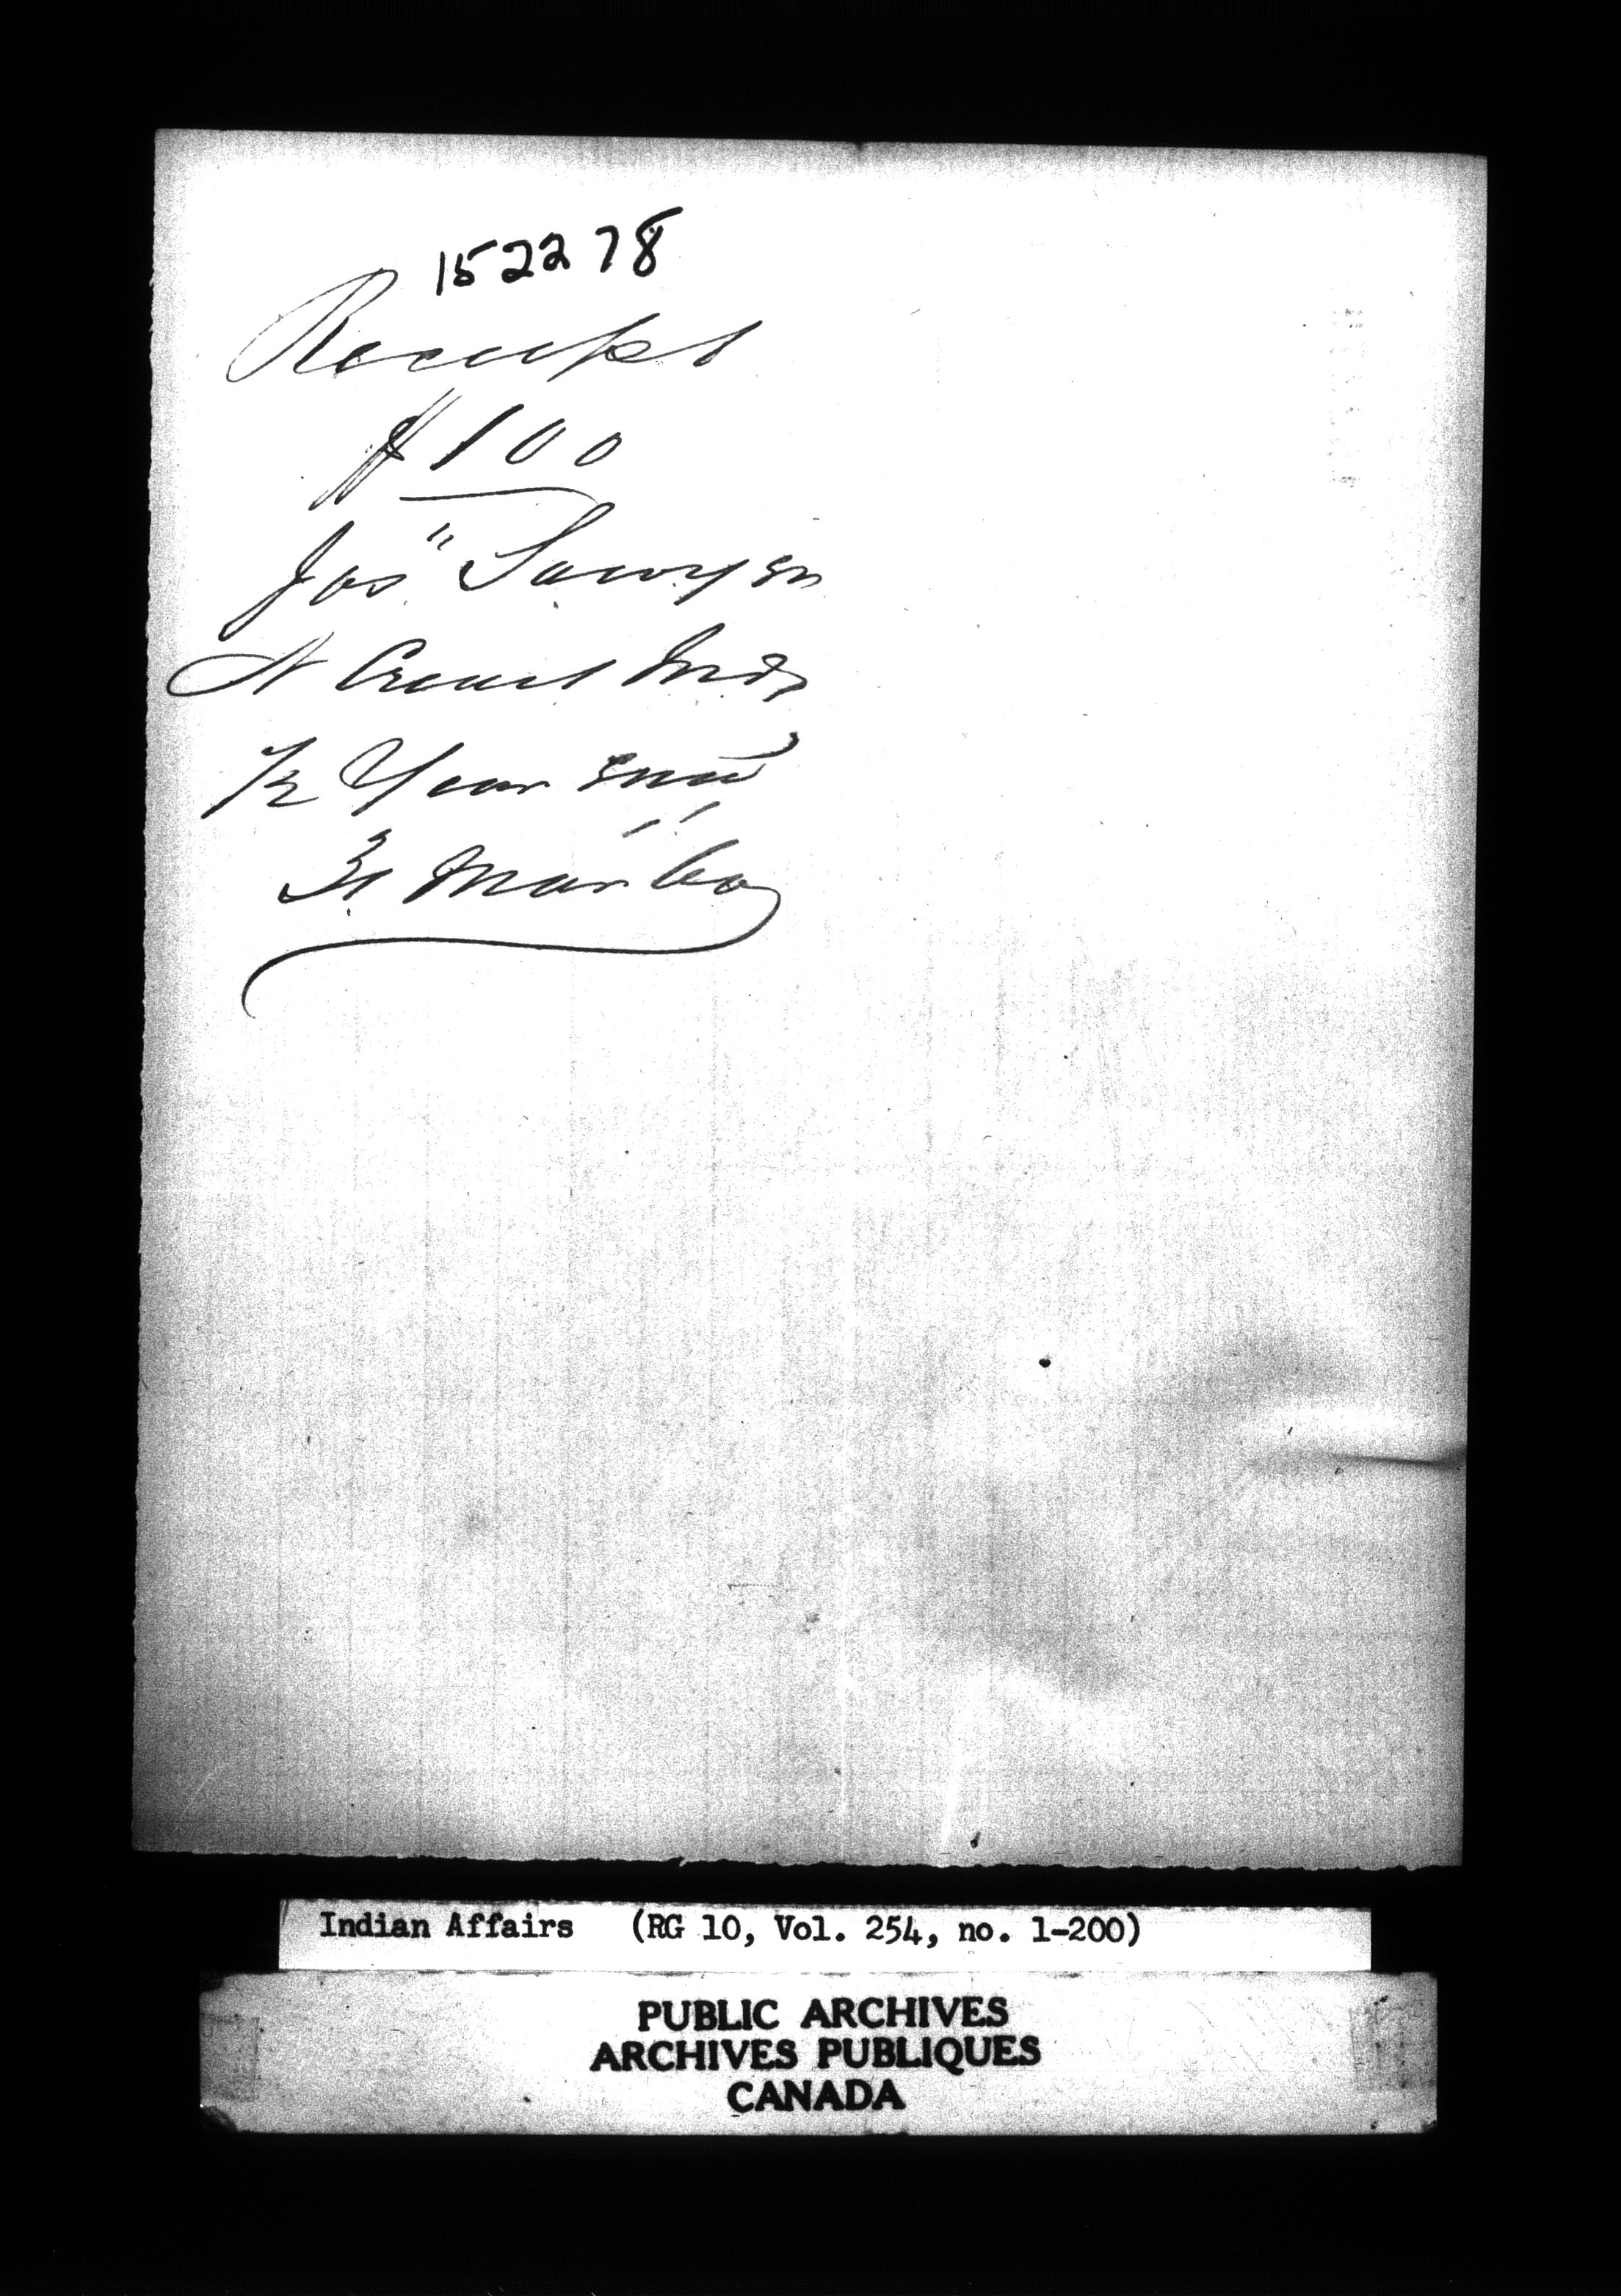 152278
Receipt
$100
Jos" Sawyer
N Credit Inds
½ Year end
31 Mar 60
Indian Affairs (RG 10, Vol. 254, no. 1-200)
PUBLIC ARCHIVES
ARCHIVES PUBLIQUES
CANADA